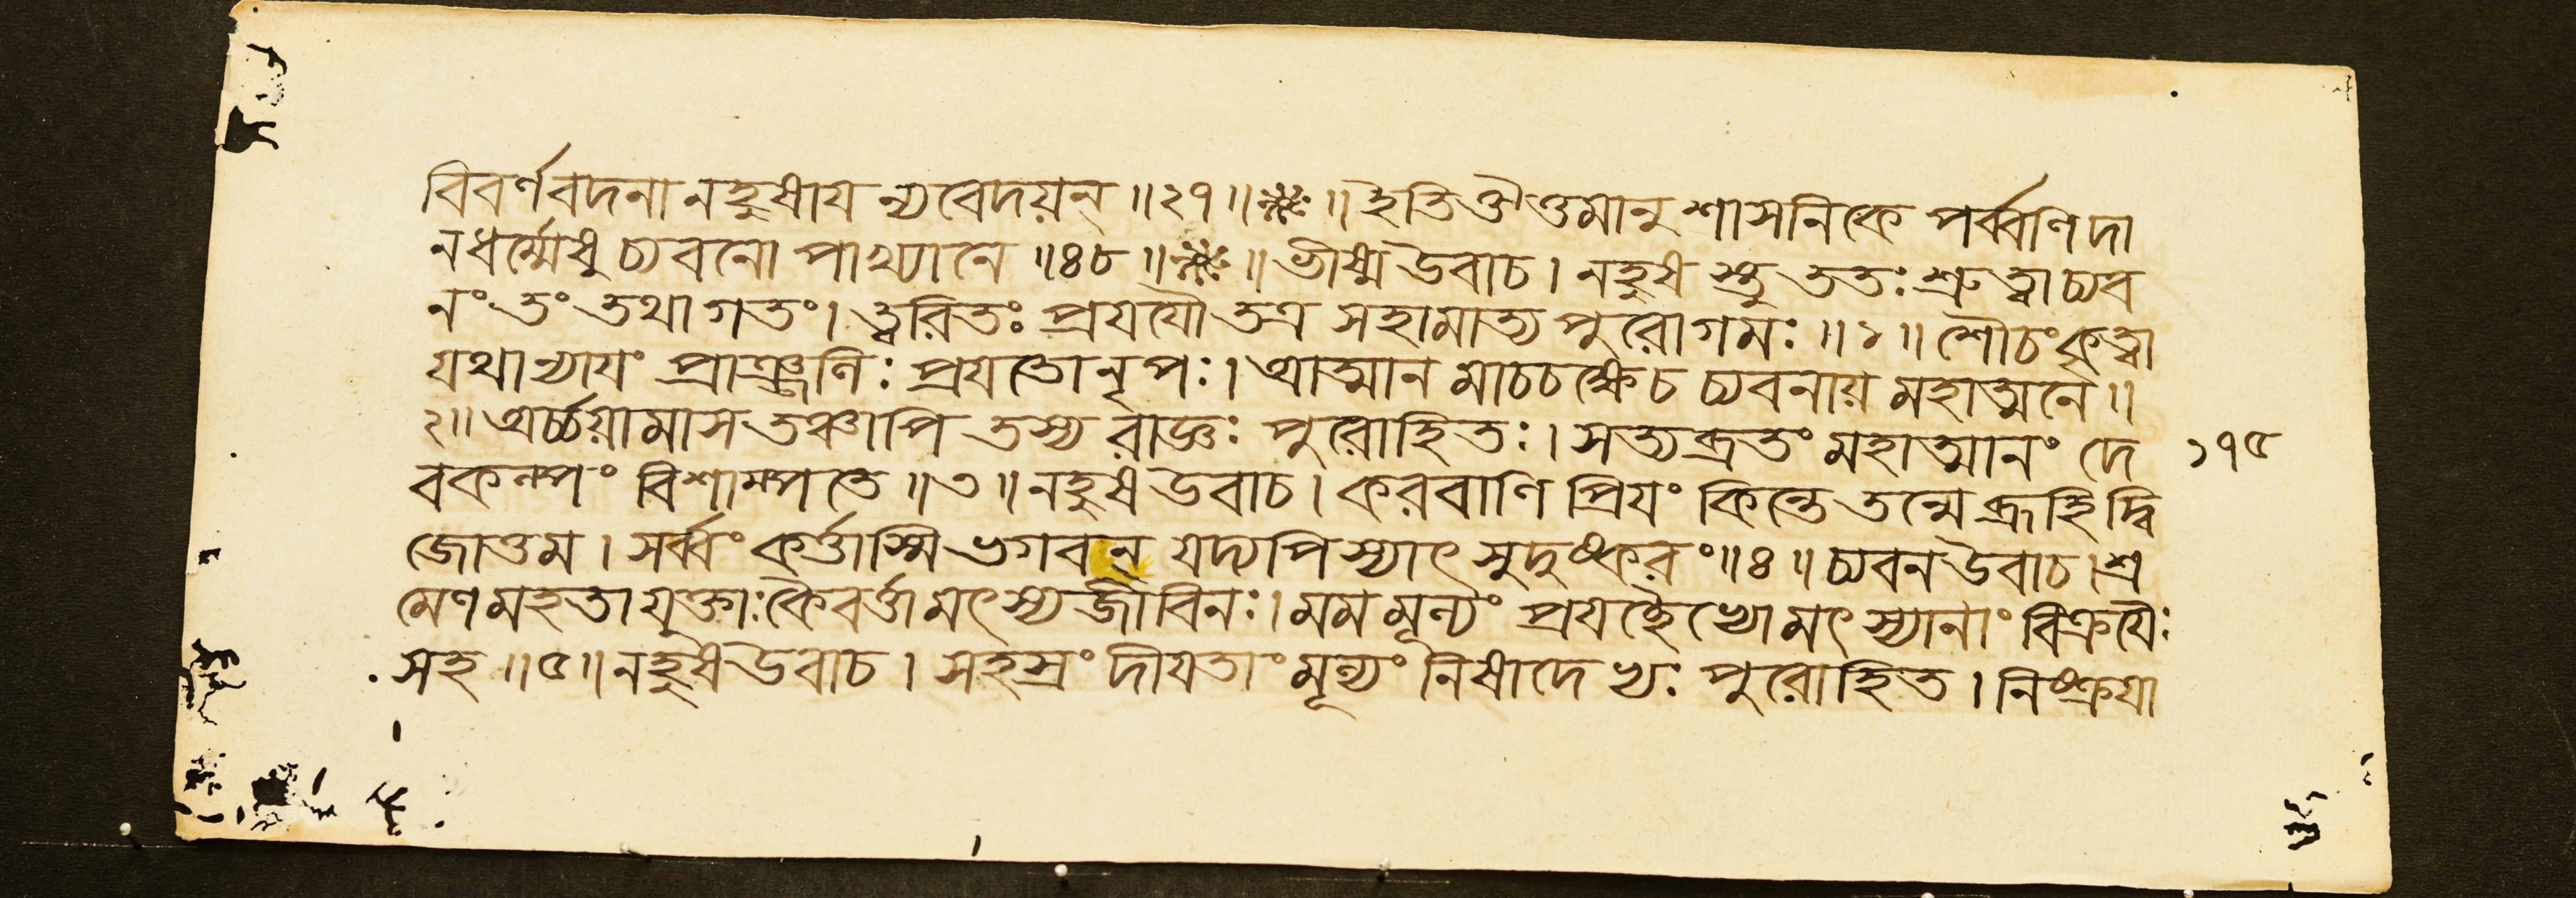 বিবর্ণবদনা নহুষায ন্যবেদয়ন্ ॥২৭॥※॥ ইতি ঔত্তমানুশাসনিকে পর্ব্বণি দা
নধর্ম্মেষু চ্যবনোপাখ্যানে ॥৪৮॥※॥ ভীষ্ম উবাচ। নহুষস্তু ততঃ শ্রুত্বা চ্যব
নং তং তথাগতং। ত্বরিতঃ প্রযযৌ তত্র সহামাত্যপুরোগমঃ ॥১॥ শৌচং কৃত্বা
যথান্যাযং প্রাঞ্জলিঃ প্রযতো নৃপঃ। আত্মানমাচচক্ষে চ চ্যবনায় মহাত্মনে ॥
২॥ অর্চ্চয়ামাস তঞ্চাপি তস্য রাজ্ঞঃ পুরোহিতঃ। সত্যব্রতং মহাত্মানং দে
বকল্পং বিশাম্পতে ॥৩॥ নহুষ উবাচ। করবাণি প্রিযং কিন্তে তন্মে ব্রূহি দ্বি
জোত্তম। সর্ব্বং কর্ত্তাস্মি ভগবন্ যদ্যপি স্যাৎ সুদুষ্করং ॥৪॥ চ্যবন উবাচ। শ্র
মেণ মহতা যুক্তাঃ কৈবর্ত্তা মৎস্যজীবিনঃ। মম মূল্যং প্রযচ্ছৈভ্যো মৎস্যানাং বিক্রযৈঃ
সহ ॥৫॥ নহুষ উবাচ। সহস্রং দীযতাং মূল্যং নিষাদেভ্যঃ পুরোহিত। নিষ্ক্রযা
১৭৫